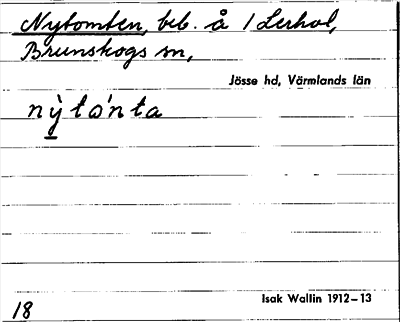 Nytomten, beb. å 1 Lerhol,
Brunskogs sn,
Jösse hd, Värmlands län
nỳtòńta
Isak Wallin 1912–13
18